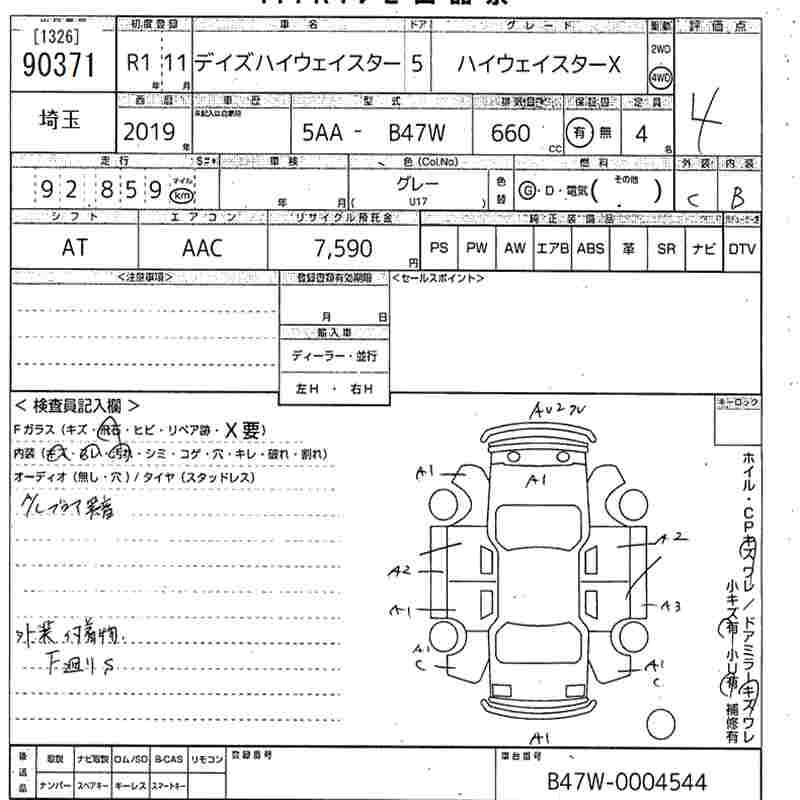 [1326]
90371
埼玉
初度登録 車名 ドア グレード 駆動 評価点
R1 11 デイズハイウェイスター 5 ハイウェイスターX 2WD 4WD
年 月
4
西暦 車歴 型式 排気量 保証書 定員
2019 年 5AA - B47W 660 cc 有 無 4 名
走行 車検 色(Col.No) 燃料 外装 内装
92 859 マイル km 年 月 グレー (U17) 色替 G・D・電気( その他 ) C B
シフト エアコン リサイクル預託金 純正装備品
AT AAC 7,590 円 PS PW AW エアB ABS 革 SR ナビ DTV
<注意事項> 登録書類有効期限 <セールスポイント>
月 日
輸入車
ディーラー・並行
左H ・ 右H
キーロック
< 検査員記入欄 >
Fガラス (キズ・飛石・ヒビ・リペア跡・X要)
内装 (キズ・スレ・汚れ・シミ・コゲ・穴・キレ・破れ・割れ)
オーディオ (無し・穴) / タイヤ (スタッドレス)
外装付着物.
下廻りS
A1
A1
A1
A2
A2
A1
A3
A1
C
A1
C
A1
ホイル・CPキズワレ/ドアミラーキズワレ
小キズ有・小U有・補修有
後送品 取説 ナビ取説 ロム/SD B-CAS リモコン 登録番号 車台番号
ナンバー スペアキー キーレス スマートキー
B47W-0004544